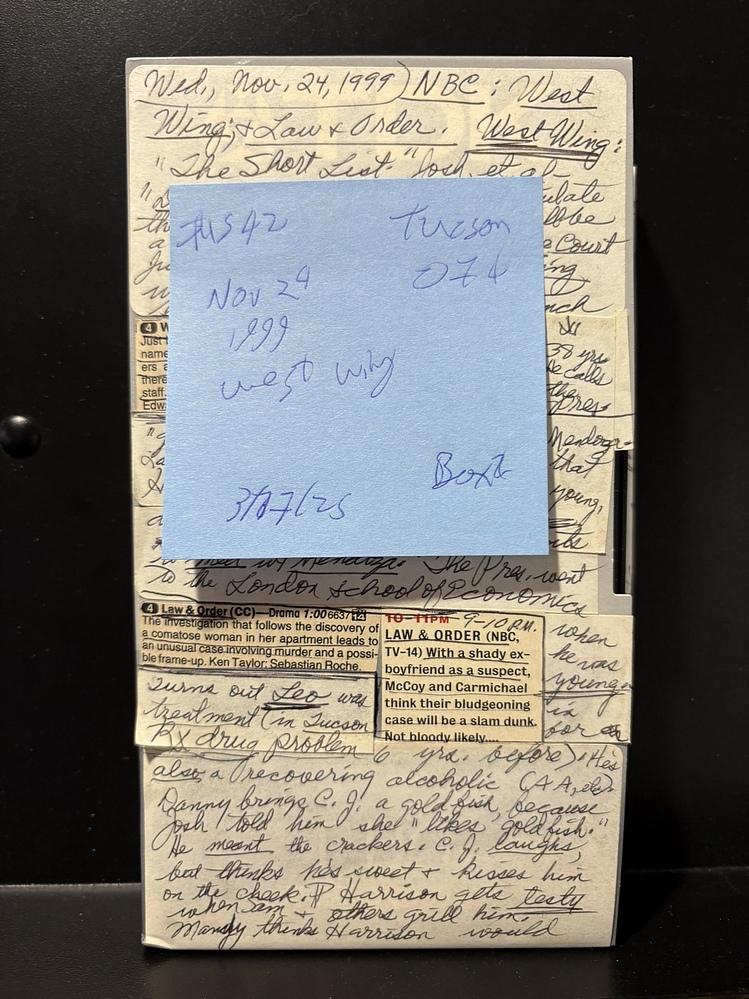 Wed., Nov. 24, 1999) NBC: West
Wing; & Law & Order. West Wing:
"The Short List." Josh et al
#US42 Tucson
074
Nov 24
1999
West Wing
Box 2
3/17/25
ulate
ll be
e Court
ing
nch
4 W
Just
name
ers a
there
staff.
Edw
38 yrs
He calls
Pres
Mendoza
that
young,
to meet w/ Mendoza. The Pres. went
to the London School of Economics
when
he was
young.
is
for
4 Law & Order (CC)—Drama 1:00 6637 12
The investigation that follows the discovery of
a comatose woman in her apartment leads to
an unusual case involving murder and a possi-
ble frame-up. Ken Taylor: Sebastian Roche.
10–11PM 9-10 P.M.
LAW & ORDER (NBC,
TV-14) With a shady ex-
boyfriend as a suspect,
McCoy and Carmichael
think their bludgeoning
case will be a slam dunk.
Not bloody likely....
Turns out Leo was
treatment (in Tucson
Rx drug problem 6 yrs. before). He's
also a recovering alcoholic (AA, etc).
Danny brings C.J. a goldfish, because
Josh told him she "likes goldfish."
He meant the crackers. C.J. laughs,
but thinks he's sweet & kisses him
on the cheek. ¶ Harrison gets testy
when Sam & others grill him.
Mandy thinks Harrison would